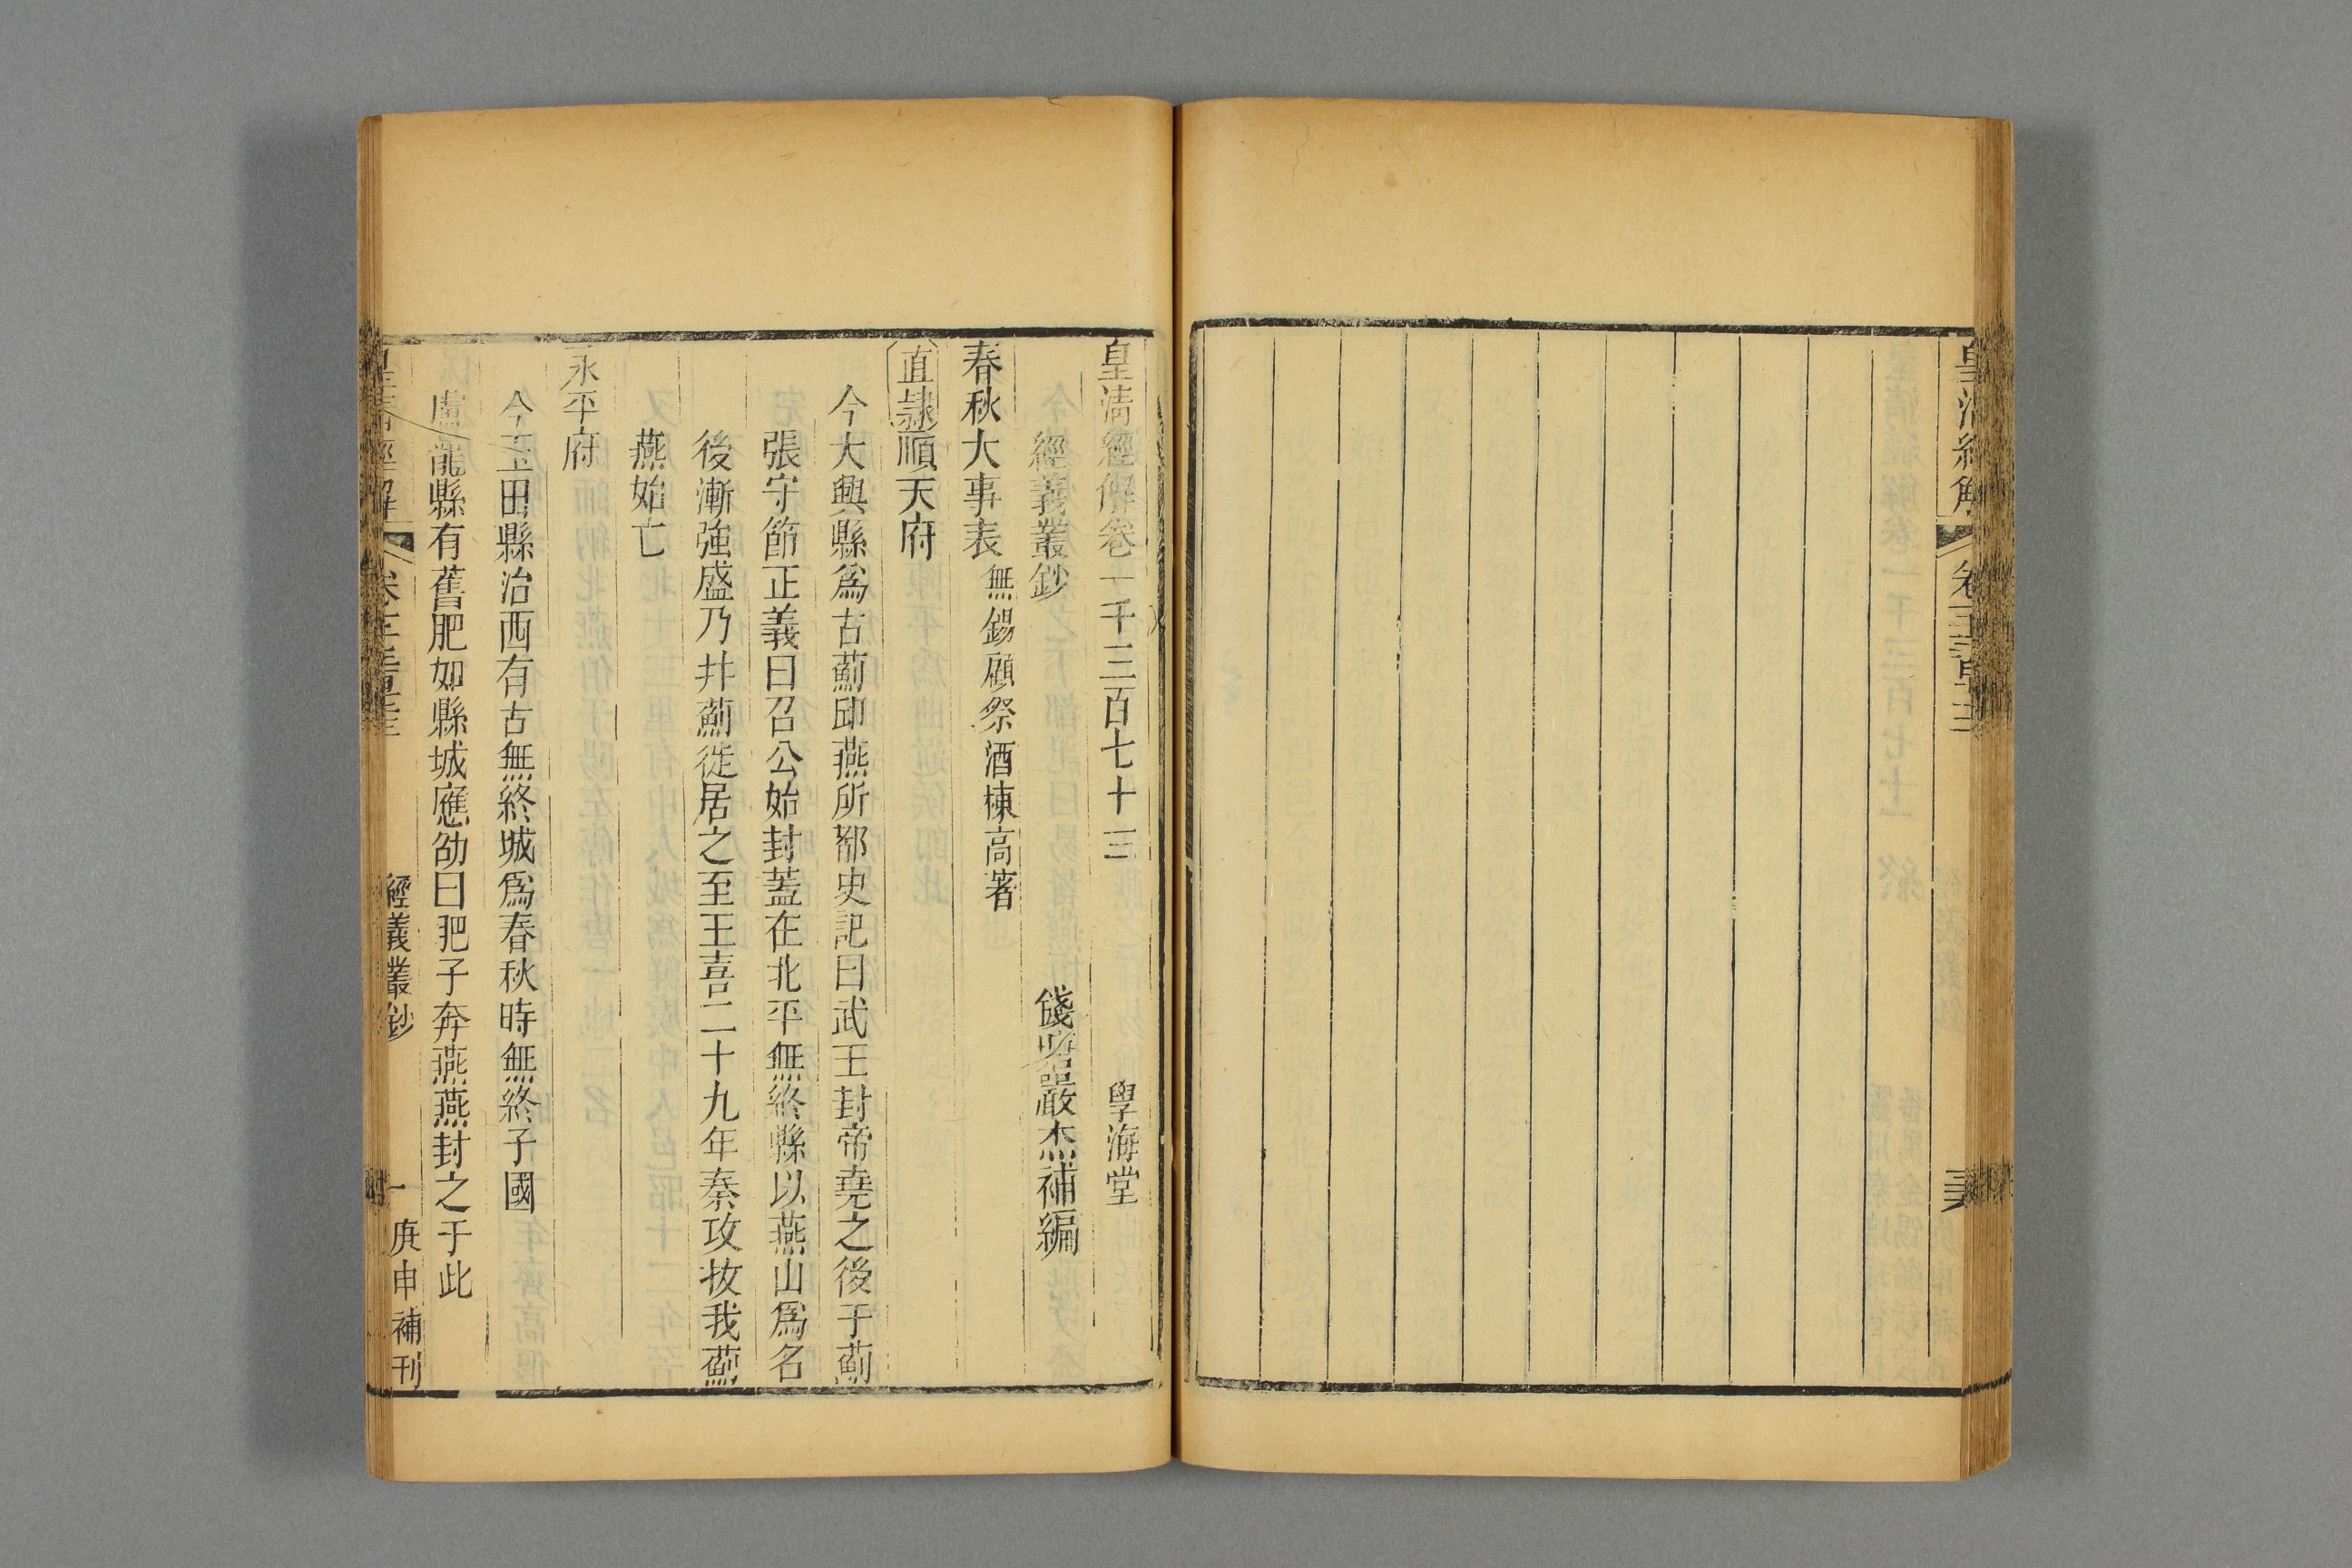 皇清經解
皇清經解卷一千三百七十三
學海堂
經義叢鈔
錢塘嚴杰補編
春秋大事表
無錫顧祭酒棟高著
直隷順天府
今大興縣爲古薊卽燕所都史記曰武王封帝堯之後于薊
張守節正義曰召公始封蓋在北平無終縣以燕山爲名
後漸強盛乃并薊徙居之至王喜二十九年秦攻拔我薊
燕始亡
永平府
今玉田縣治西有古無終城爲春秋時無終子國
盧龍縣有舊肥如縣城應劭曰肥子奔燕燕封之于此
皇清經解
經義叢鈔
一
庚申補刊